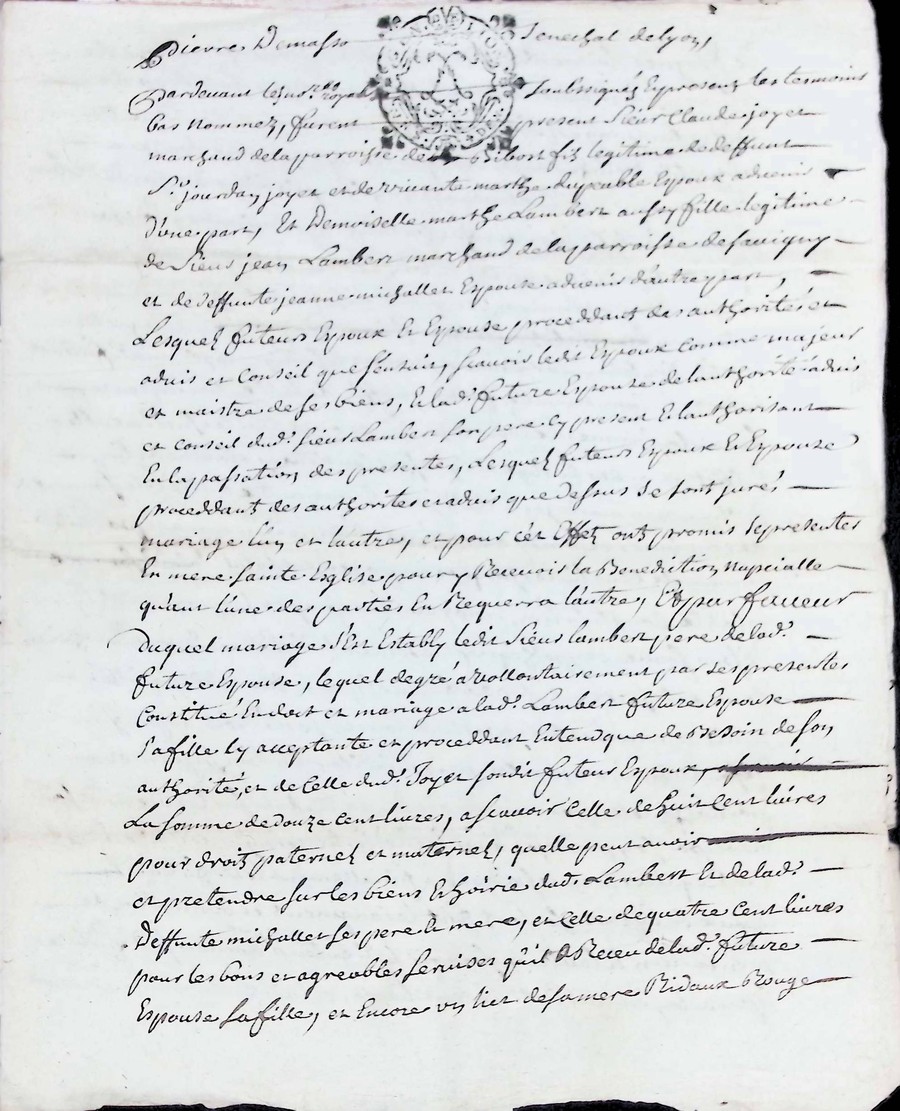 Pierre Demasso Senechal de Lyon,
Pardevant le no.re Royal soubsigné, Et presens les temoins
bas nommez, furent present Sieur Claude joyet
marchand de la parroisse de Ribost fils legitime de deffunt
S.r jourdan joyet et de vivante marthe dupeuble Epoux advenir
d'une part, Et Demoiselle marthe Lambert aussy fille legitime
de Sieur jean Lambert marchand de la parroisse de savigny
et de deffunte jeanne michallet Espouse advenir d'autre part,
Lesquels futeurs Epoux Et Epouse proceddant des authorités et
advis et Conseil que s'ensuit, scavoir ledit Epoux comme majeur
et maistre de ses biens, Et lad. future Espouse de l'authorité advis
et conseil dud. sieur Lambert son pere Cy present Et l'authorisant
En la passation des presentes, Lesquels futeurs Epoux Et Epouse
proceddant des authorites et advis que dessus se sont jurés
mariage l'un et l'autre, et pour cet Effet ont promis se presenter
En mere sainte Eglise pour y Recevoir la Benediction nupcialle
quant l'une des parties En Requerra l'autre, Et par faveur
duquel mariage s'Est Estably ledit Sieur lambert pere de lad.
future Espouse, lequel de gré a vollontairement par ses presentes
Constitué En dot et mariage a lad. Lambert future Espouse
sa fille Cy acceptante et proceddant Entend que de Besoin de son
authorité, et de Celle dud. Joyet sondit futeur Epoux,
La somme de douze cent livres, a scavoir Celle de huit Cent livres
pour droits paternels et maternels, quelle peut avoir
et pretendre sur les biens Et hoirie dud. Lambert Et de lad.
Deffunte michallet ses pere Et mere, et Celle de quatre Cent livres
pour les bons et agreables services qu'il a Receu de lad. future
Espouse sa fille, et Encore un lict de sa mere Ridaux Rouge